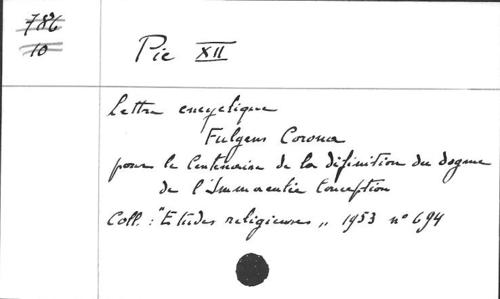 786
10
Pie XII
Lettre encyclique
Fulgens Corona
pour le Centenaire de la définition du dogme
de l'Immaculée Conception
Coll. : "Etudes religieuses „ 1953 n° 694